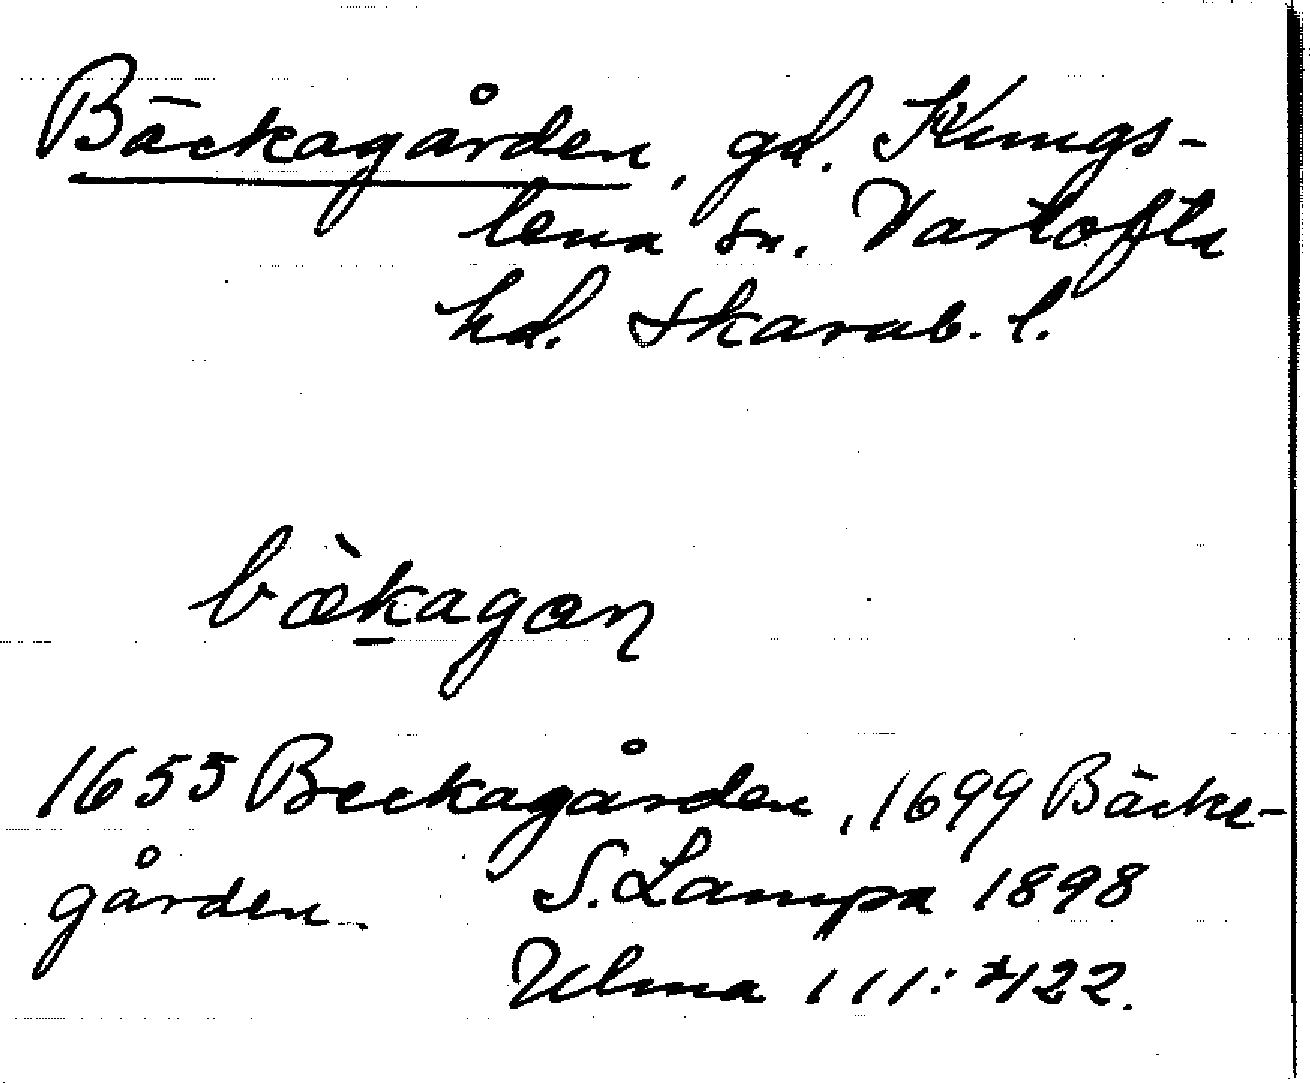 Bäckagården, gd. Kungs-
lena sn. Vartofta
hd. Skarab. l.
bæ̀kagan
1655 Beckagården, 1699 Bäcke-
gården. S. Lampa 1898
Ulma 111:422.